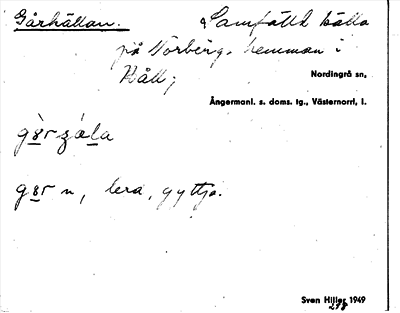 Gårkällan. Samfälld källa
på Norbergs hemman i
Häll;
Nordingrå sn,
Ångermanl. s. doms. lg., Västernorrl, l.
gàrzäla
gar n, lera, gyttja.
Sven Hiller 1949
278